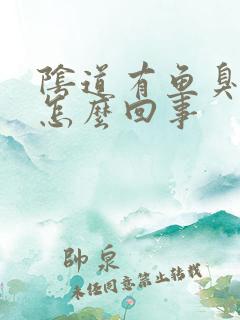 陰道有魚臭
怎麼回事
帥泉
未经同意禁止转载